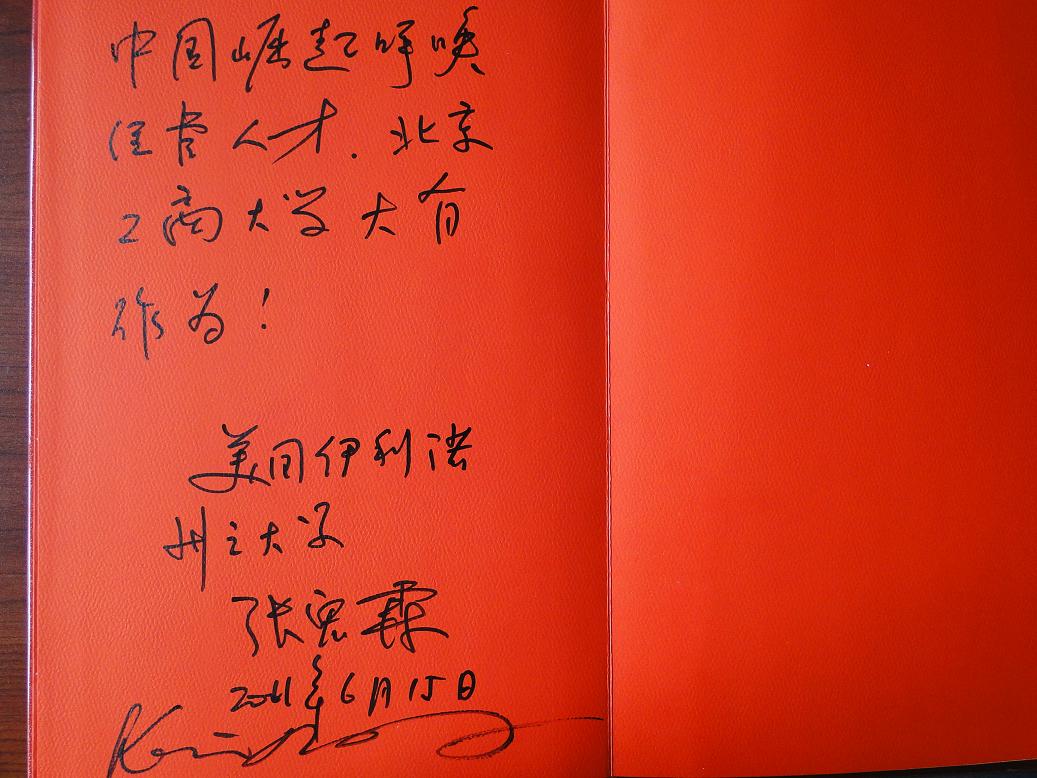 中国崛起呼唤
经营人才. 北京
工商大学大有
作为!
美国伊利诺
州立大学
张宏霖
2011年6月15日